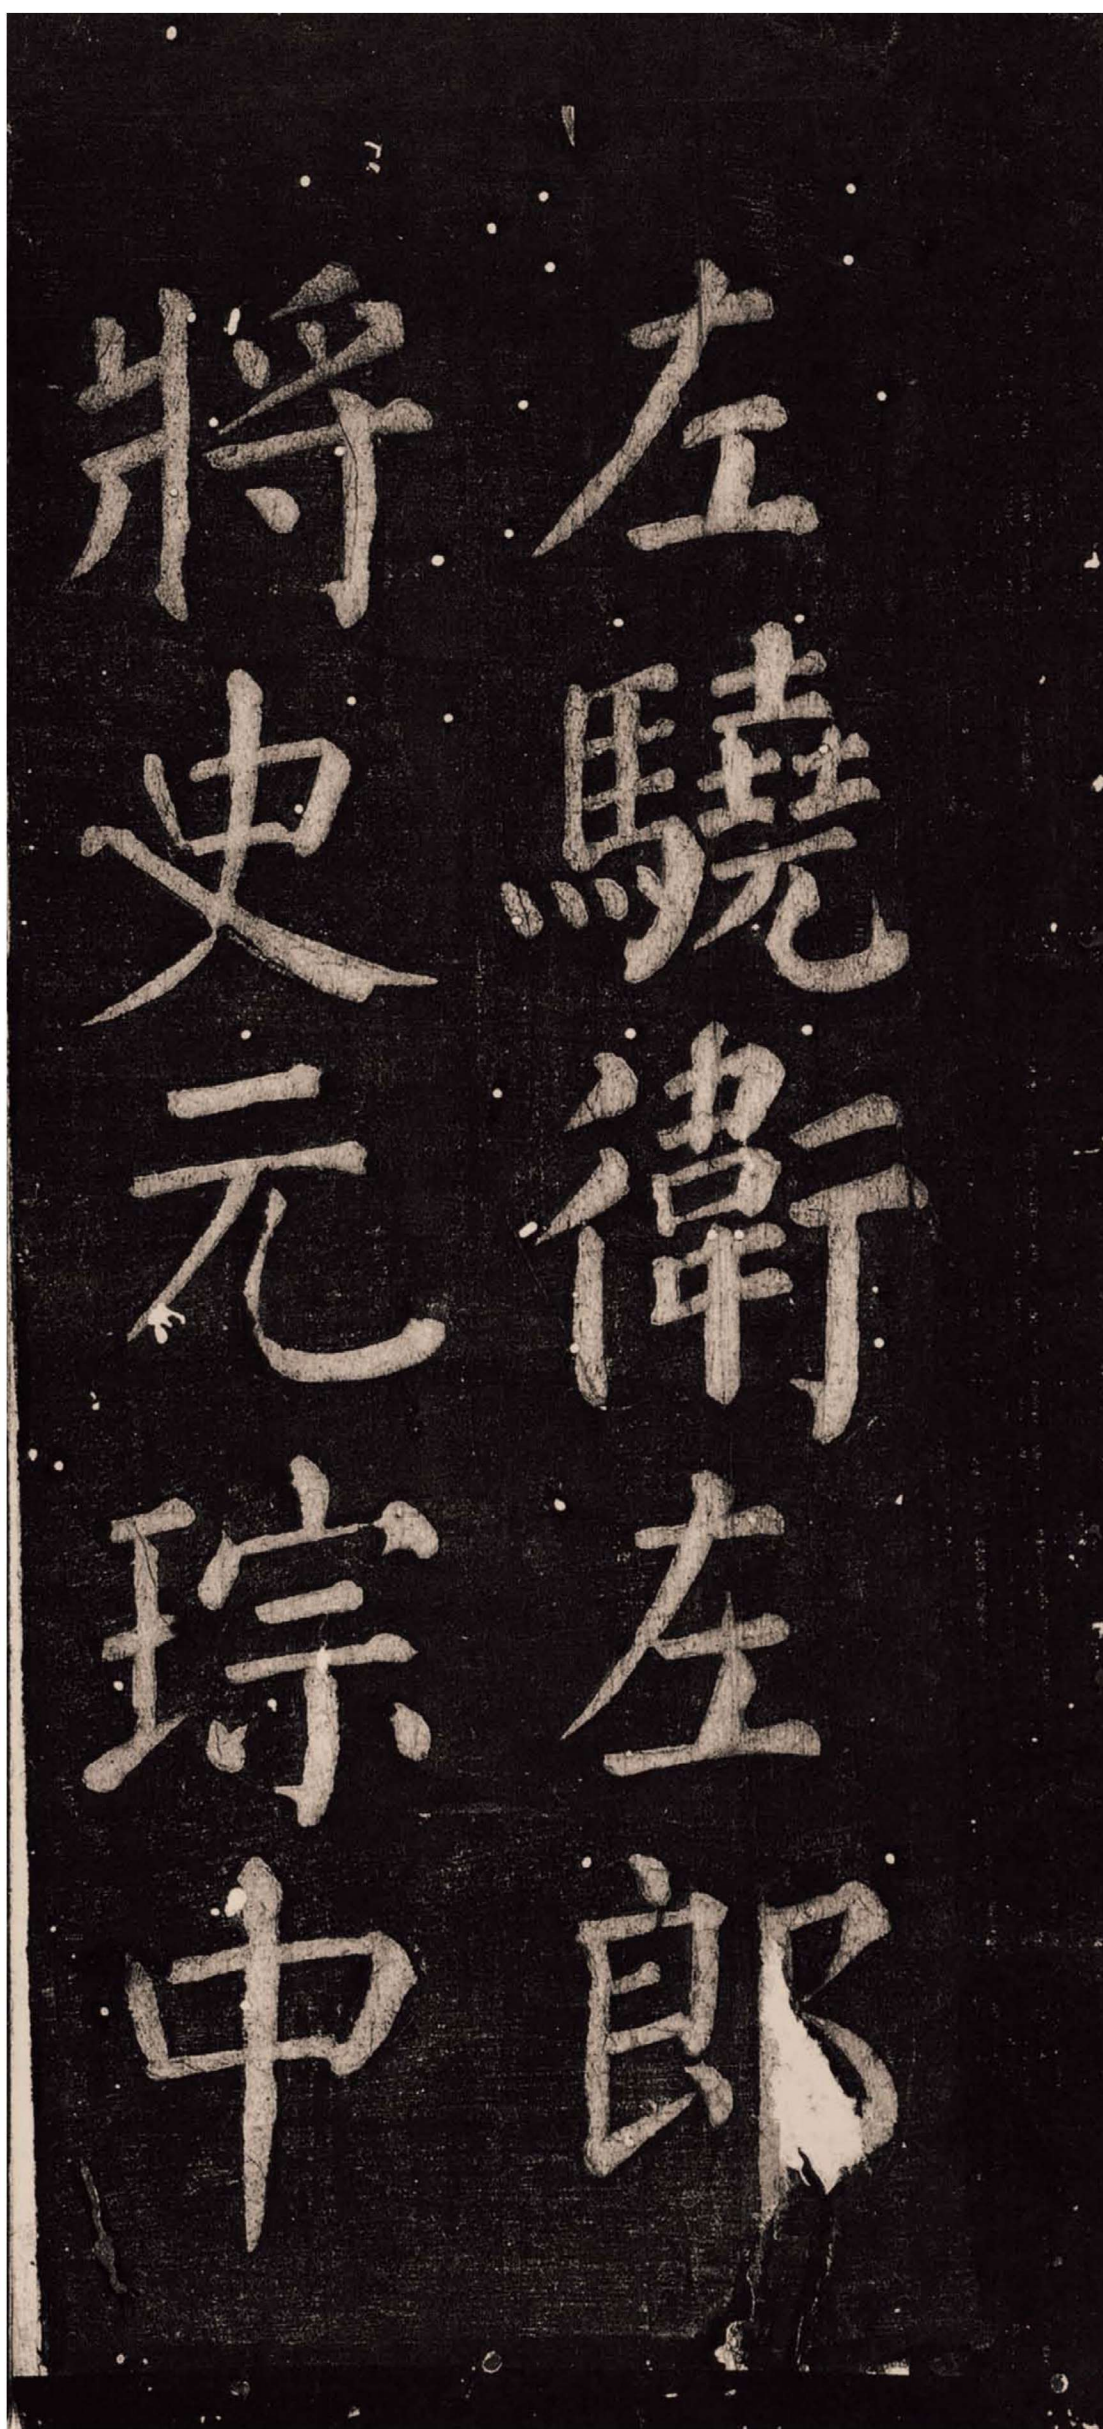 左驍衛左郎
將史元琮中